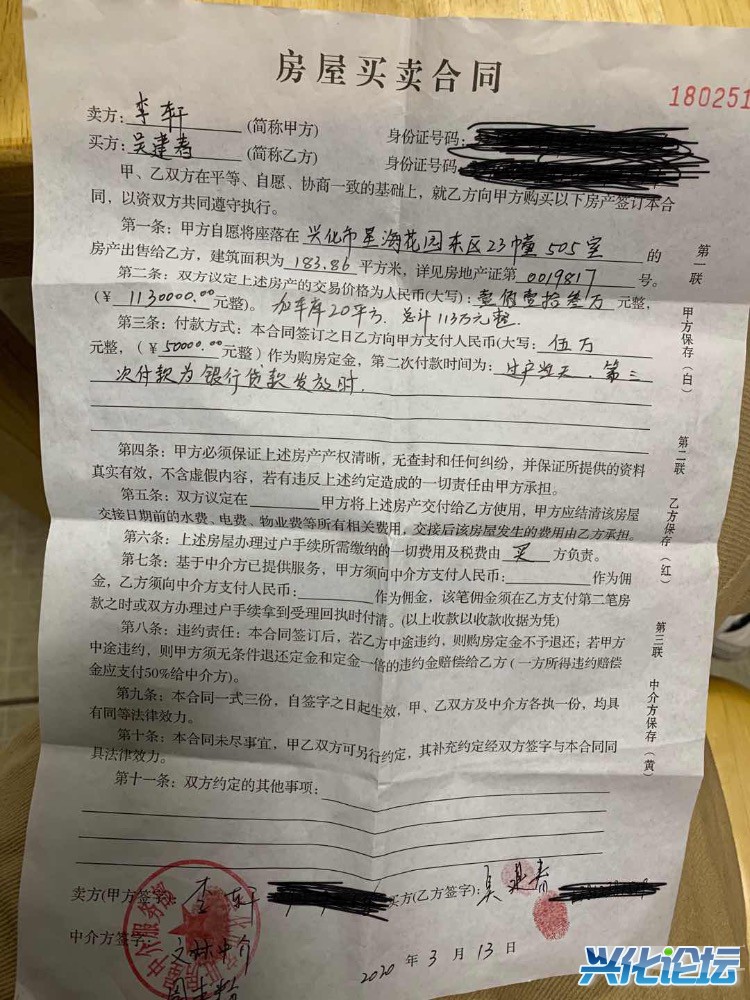 房屋买卖合同
180251
卖方：李轩 (简称甲方) 身份证号码：
买方：吴建春 (简称乙方) 身份证号码：
甲、乙双方在平等、自愿、协商一致的基础上，就乙方向甲方购买以下房产签订本合
同，以资双方共同遵守执行。
第一条：甲方自愿将座落在 兴化市星海花园东区23幢505室 的
房产出售给乙方，建筑面积为 183.86 平方米，详见房地产证第 0019817 号。
第二条：双方议定上述房产的交易价格为人民币(大写)：壹佰壹拾叁万 元整，
(￥ 1130000.00 元整)。 加车库20平方. 总计113万元整.
第三条：付款方式：本合同签订之日乙方向甲方支付人民币(大写：伍万
元整，(￥50000.00元整）作为购房定金，第二次付款时间为：过户当天.第三
次付款为银行贷款发放时.
第四条：甲方必须保证上述房产产权清晰，无查封和任何纠纷，并保证所提供的资料
真实有效，不含虚假内容，若有违反上述约定造成的一切责任由甲方承担。
第五条：双方议定在 甲方将上述房产交付给乙方使用，甲方应结清该房屋
交接日期前的水费、电费、物业费等所有相关费用，交接后该房屋发生的费用由乙方承担。
第六条：上述房屋办理过户手续所需缴纳的一切费用及税费由 买 方负责。
第七条：基于中介方已提供服务，甲方须向中介方支付人民币： 作为佣
金，乙方须向中介方支付人民币： 作为佣金，该笔佣金须在乙方支付第二笔房
款之时或双方办理过户手续拿到受理回执时付清。(以上收款以收款收据为凭）
第八条：违约责任：本合同签订后，若乙方中途违约，则购房定金不予退还；若甲方
中途违约，则甲方须无条件退还定金和定金一倍的违约金赔偿给乙方（一方所得违约赔偿
金应支付50%给中介方)。
第九条：本合同一式三份，自签字之日起生效，甲、乙双方及中介方各执一份，均具
有同等法律效力。
第十条：本合同未尽事宜，甲乙双方可另行约定，其补充约定经双方签字与本合同同
具法律效力。
第十一条：双方约定的其他事项：
卖方(甲方签字)：李轩 买方(乙方签字)：吴建春
中介方签字：
文林中介
2020 年 3 月 13 日
第一联 甲方保存（白）
第二联 乙方保存（红）
第三联 中介方保存（黄）
中介服务部
兴化论坛